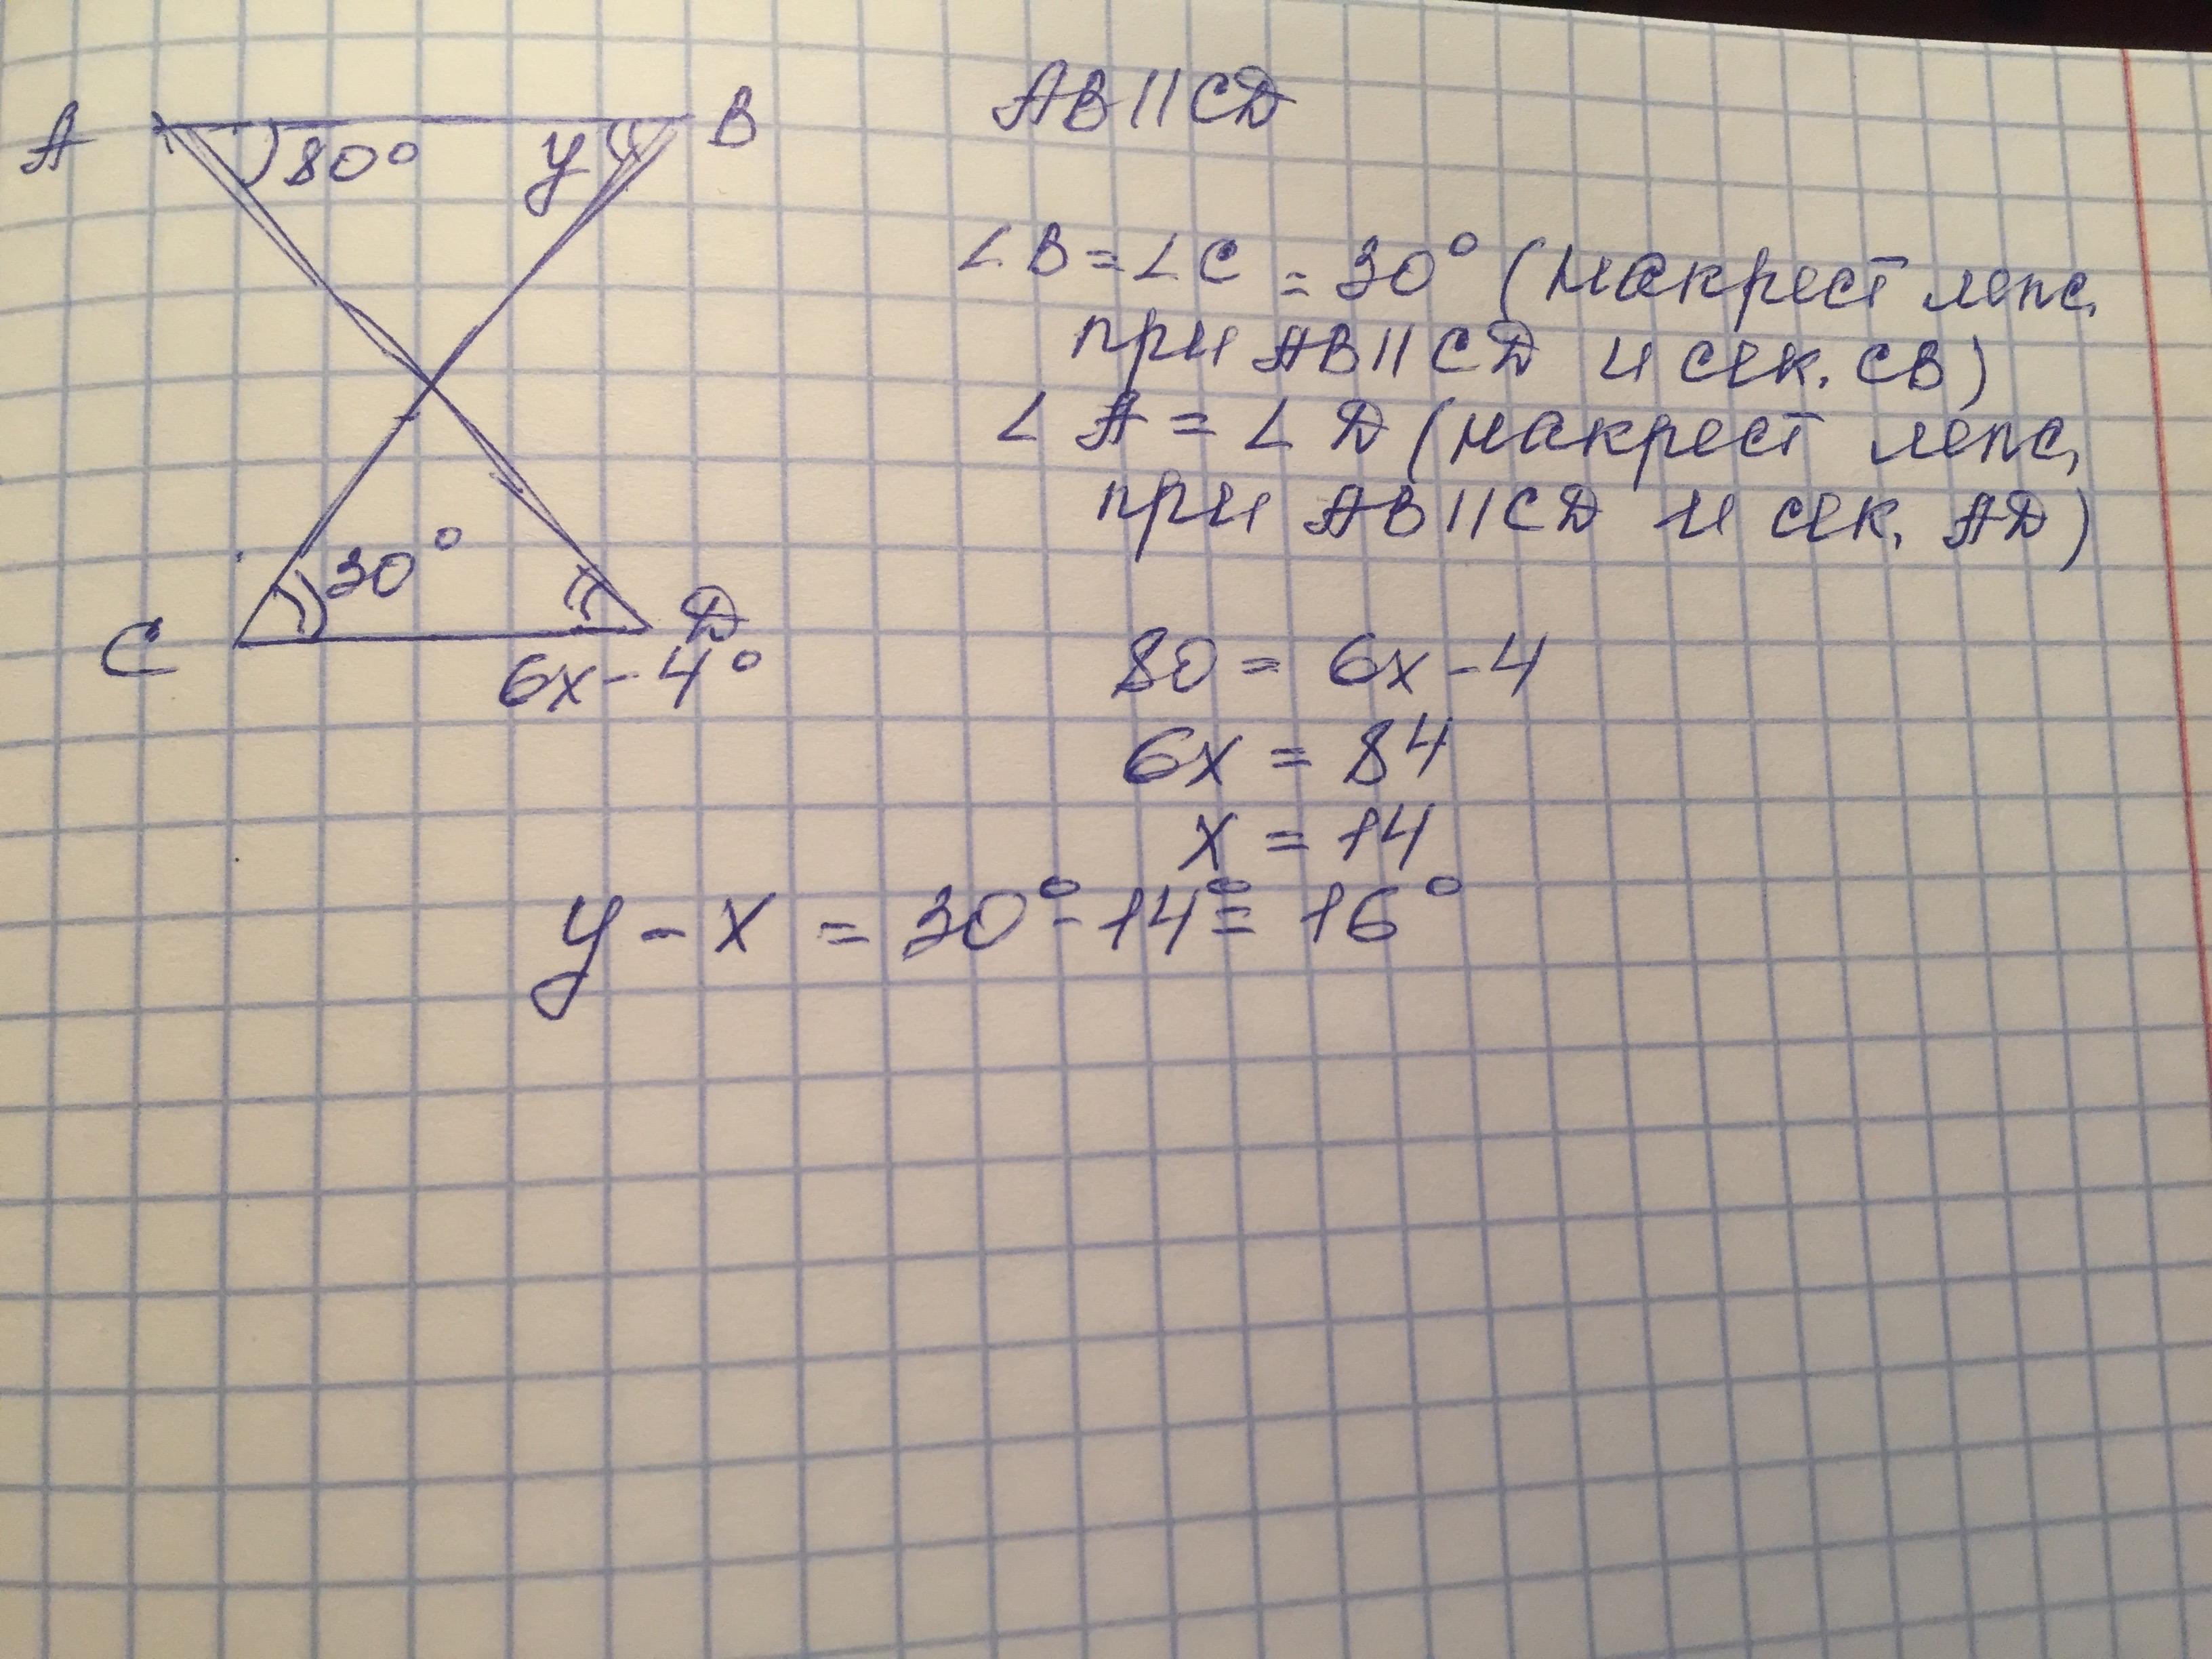 A
B
80°
y
30°
C
D
6x-4°
AB||CD
∠B=∠C=30° (накрест леж.
при AB||CD и сек. CB)
∠A=∠D (накрест леж.
при AB||CD и сек. AD)
80=6x-4
6x=84
x=14
y-x=30°-14°=16°